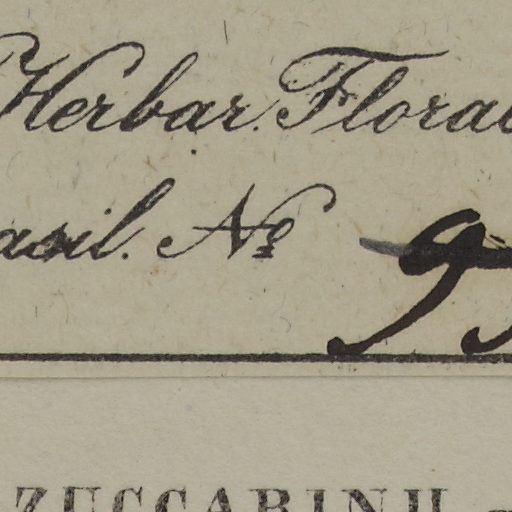 Herbar. Florae
asil. No 9
ZUCCARINII